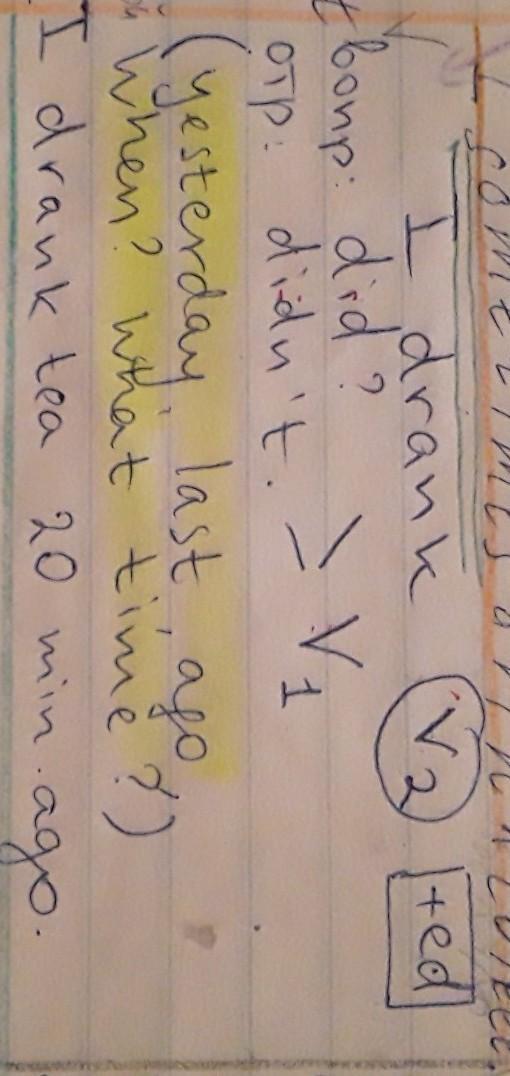 sometimes
I drank V2 +ed
вопр: did?
отр: didn't. > V1
(yesterday, last, ago
When? What time?)
I drank tea 20 min. ago.